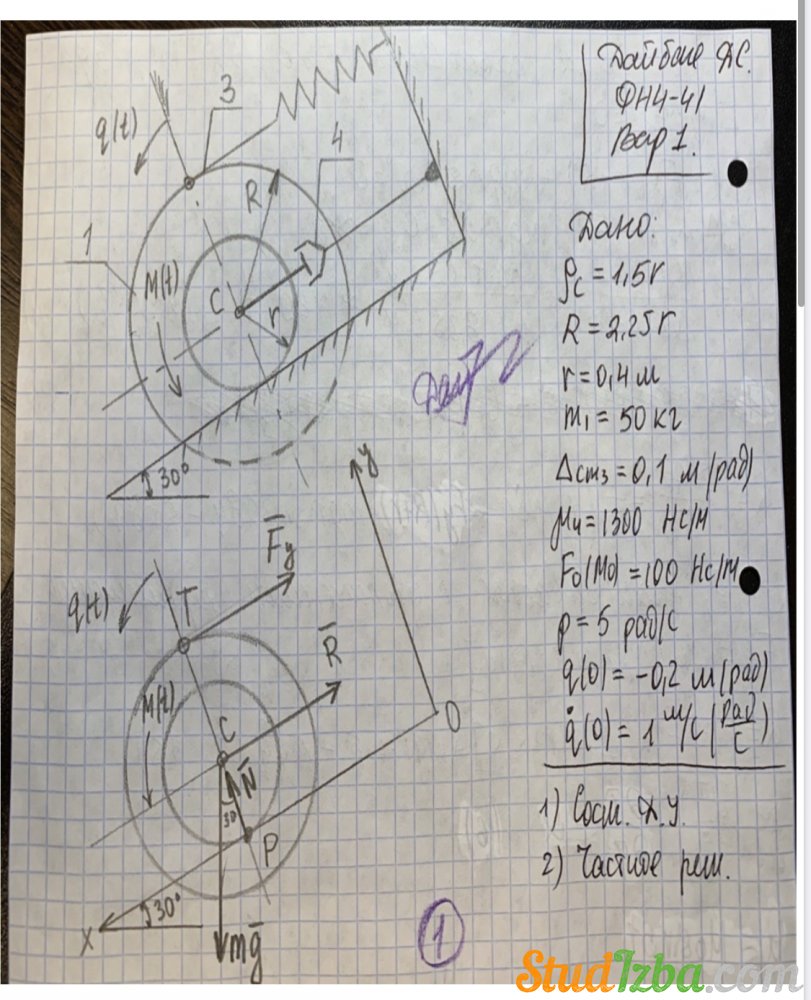 ФН4-41
Вар 1.
q(t)
3
4
R
1
M(t)
C
r
30°
Дано:
ρc = 1,5r
R = 2,25r
r = 0,4 м
m₁ = 50 кг
Δст₃ = 0,1 м (рад)
μ₄ = 1300 Нс/м
F₀(M₀) = 100 Нс/м
p = 5 рад/с
q(0) = -0,2 м (рад)
q̇(0) = 1 м/с (рад/с)
1) Сост. Д.У.
2) Частное реш.
y
F̅y
q(t)
T
R̅
M(t)
C
O
N̅
30
P
30°
x
mg̅
1
StudIzba.com